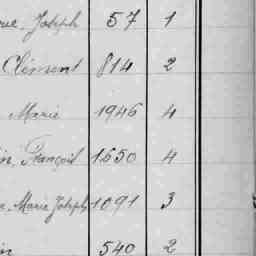 Joseph 57 1
Clément 814 2
Marie 1946 4
François 1650 4
Marie Joseph 1091 3
540 2